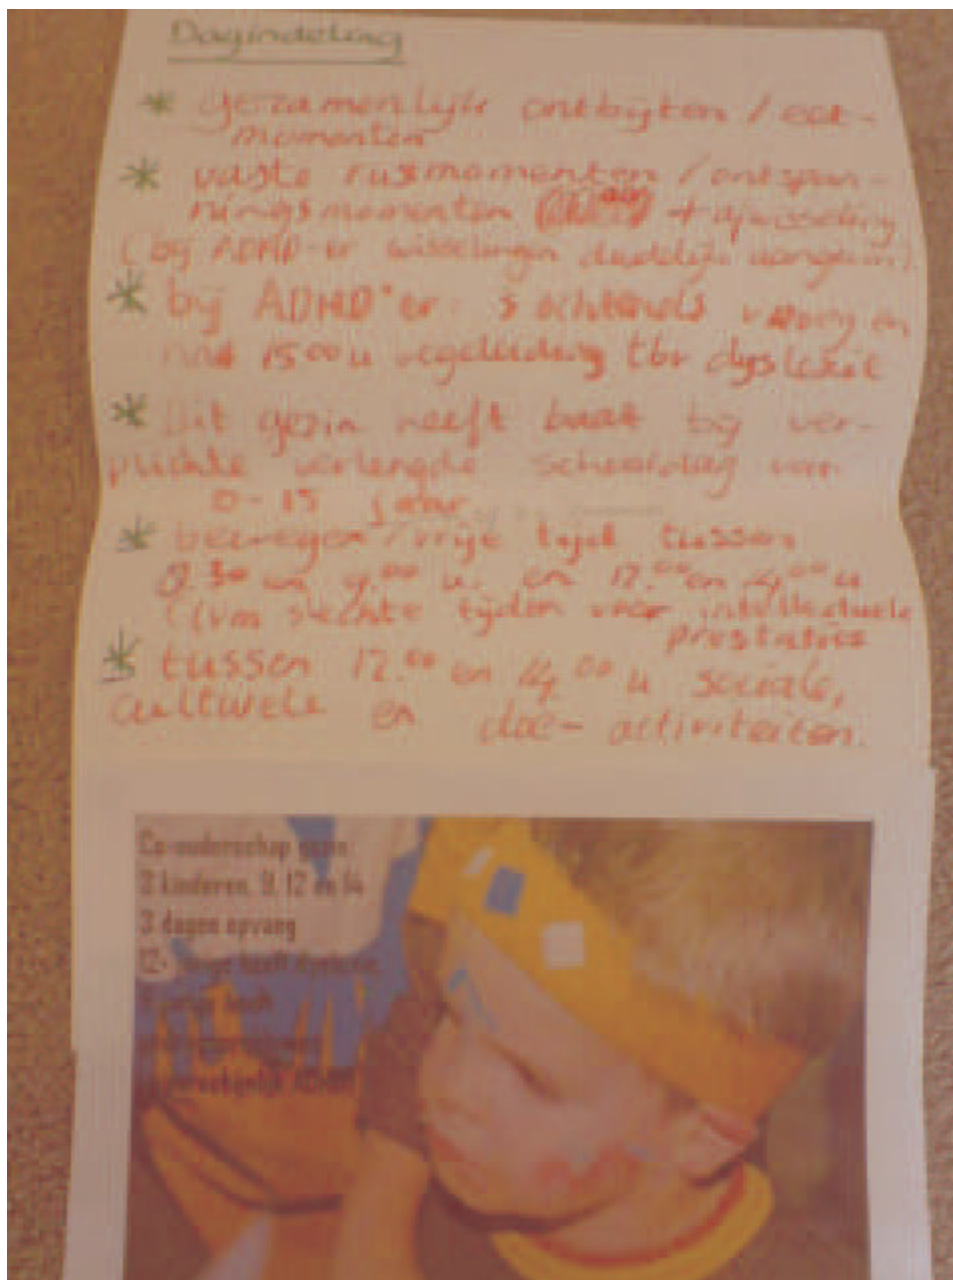 Dagindeling
* gezamenlijk ontbijten / eet-
momenten
* vaste rustmomenten / ontspan-
ningsmomenten + afwisseling
(bij ADHD-er wisselingen duidelijk aangeven)
* bij ADHD'er: 's ochtends vroeg en
na 15.00 u begeleiding tbv dyslexie
* Dit gezin heeft baat bij ver-
plichte verlengde schooldag van
0-15 jaar
* bewegen / vrije tijd tussen
8.30 en 9.00 u. en 12.00 en 14.00 u
(ivm slechte tijden voor intellectuele
prestaties
* tussen 12.00 en 14.00 u sociale,
culturele en doe-activiteiten.
Co-ouderschap gezin:
3 kinderen, 9, 12 en 14
3 dagen opvang
12- jarige heeft dyslexie,
9 jarige heeft
ADHD